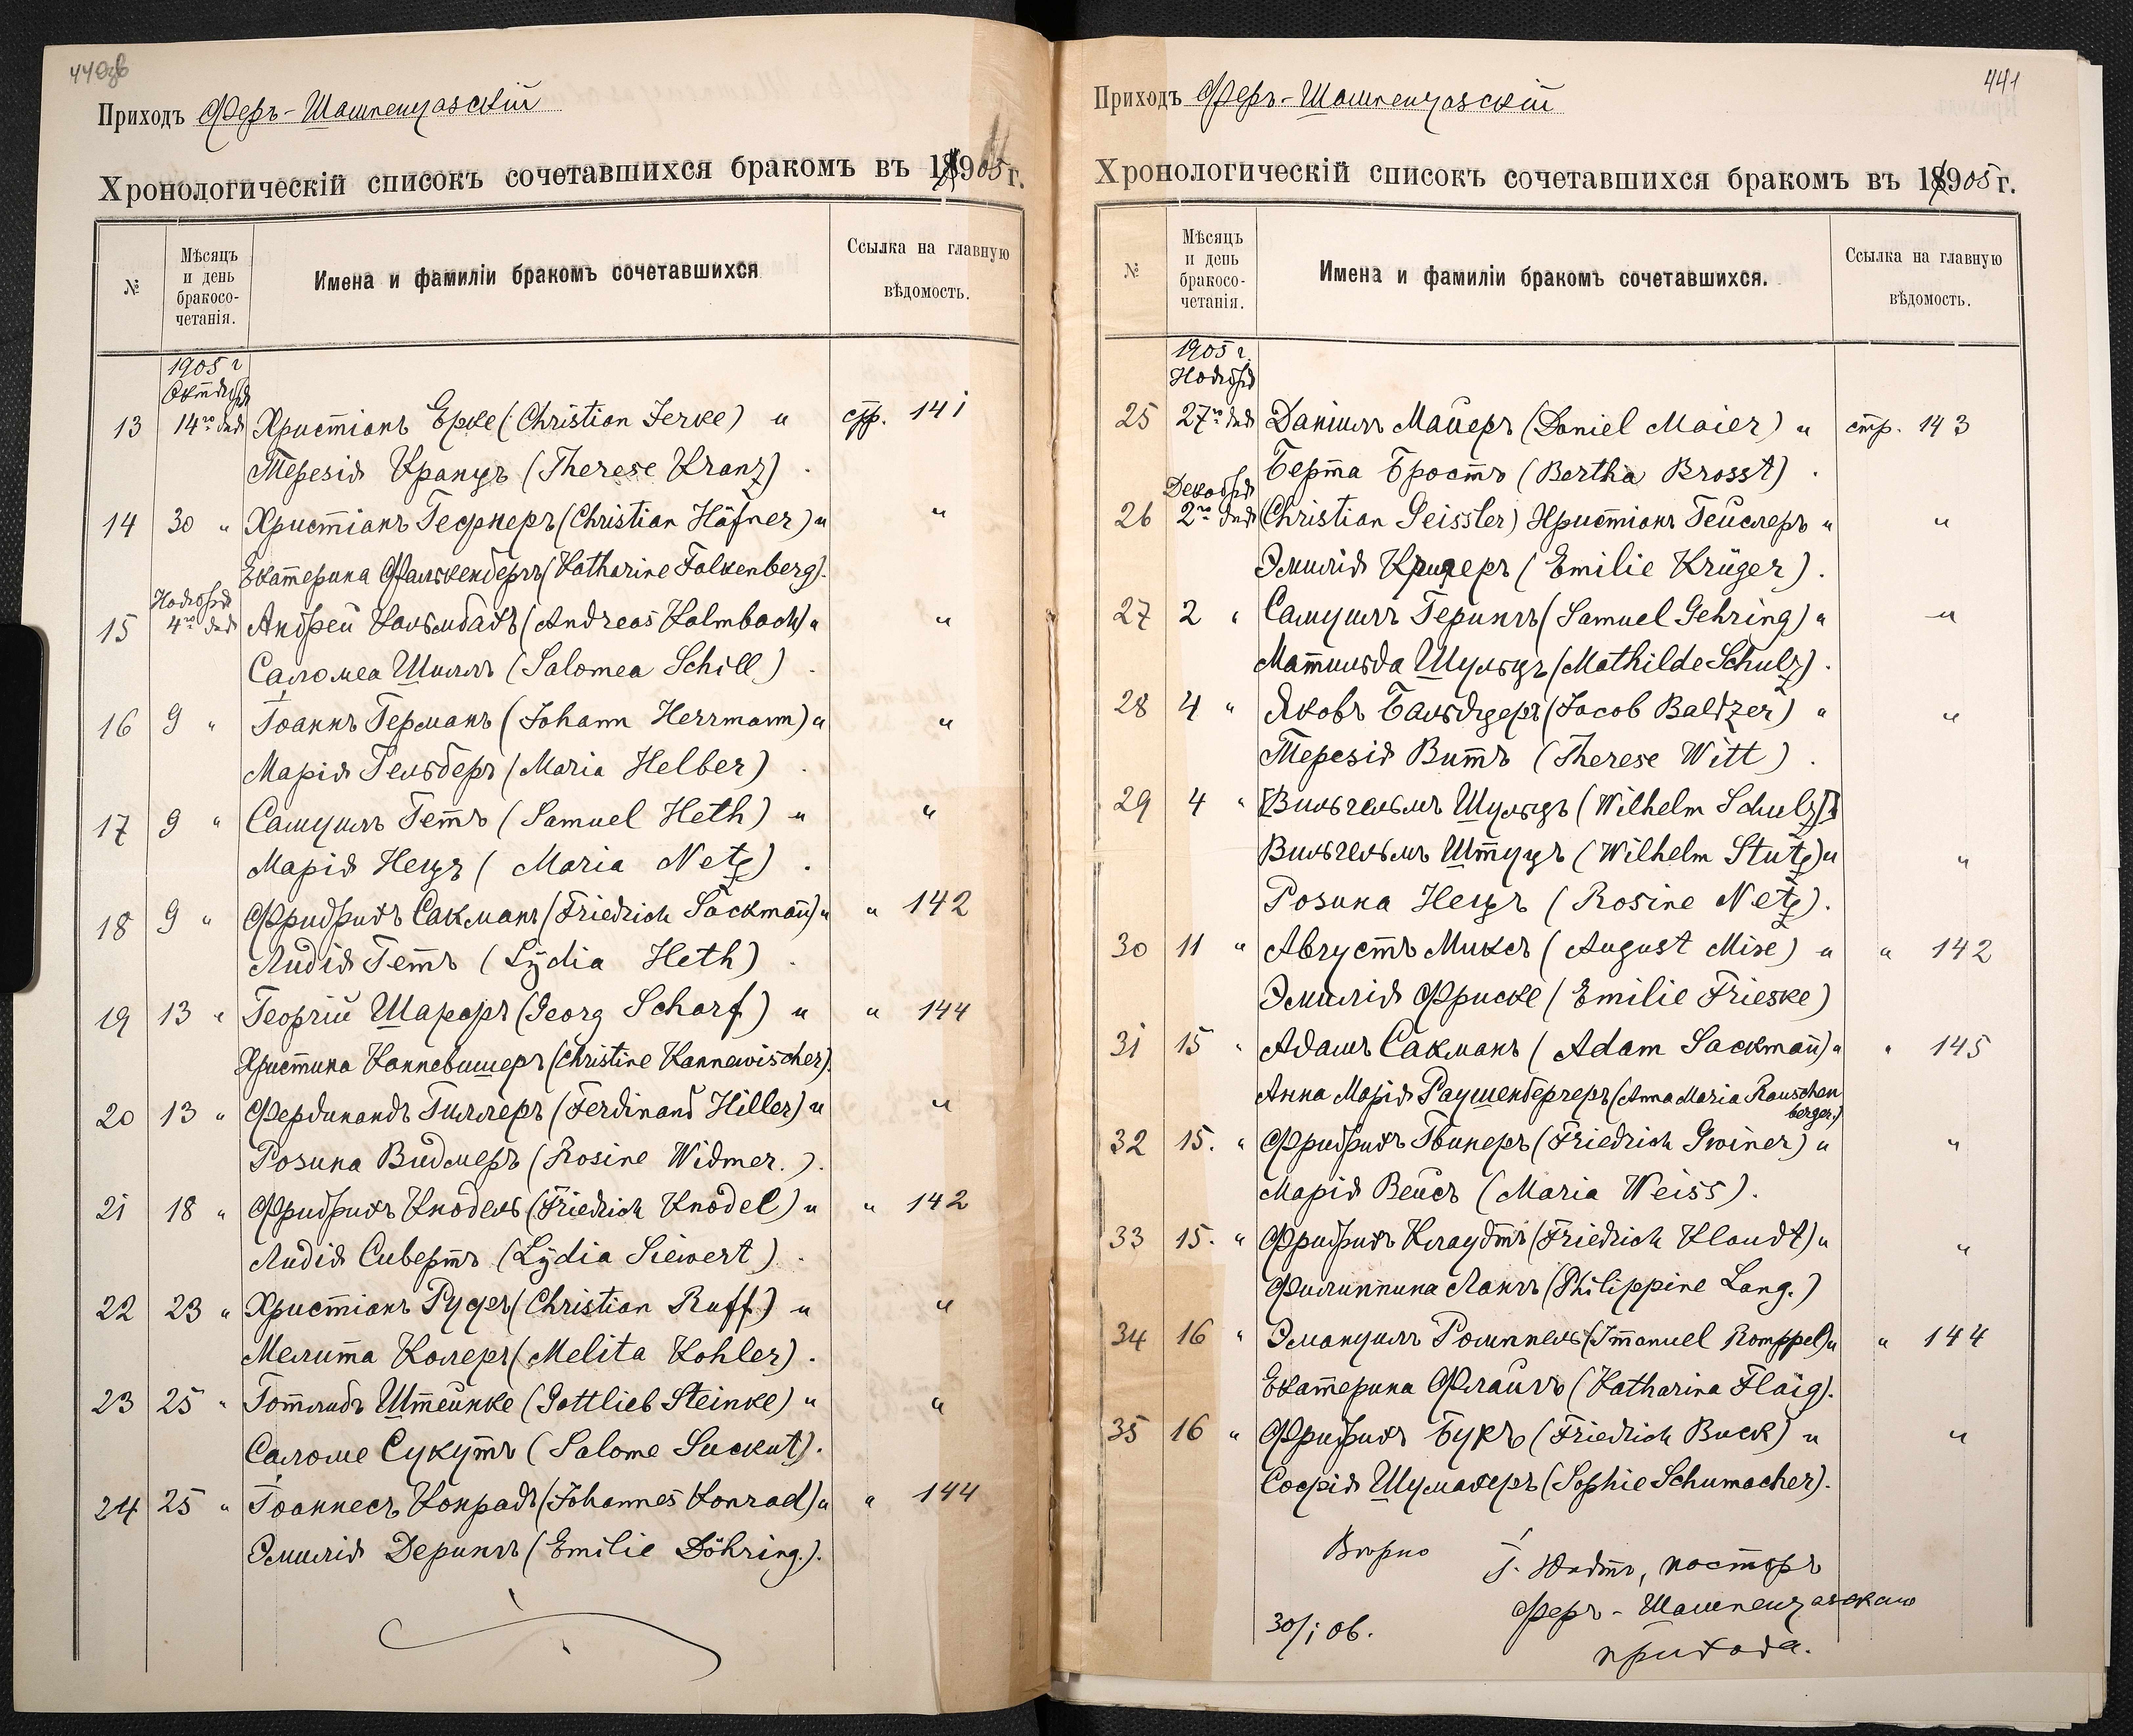 440об
Приходъ Феръ-Шампенуазскій
Хронологическій списокъ сочетавшихся бракомъ въ 18905 г.
№
Мѣсяцъ
и день
бракосо-
четанія.
Имена и фамиліи бракомъ сочетавшихся
Ссылка на главную
вѣдомость.
1905 г
Октября
13 14го дня Христіанъ Ерке (Christian Jerke) и стр. 141
Терезія Кранцъ (Therese Kranz).
14 30 „ Христіанъ Гефнеръ (Christian Häfner) и „
Екатерина Фалькенбергъ (Katharine Falkenberg).
Ноября
15 4го дня Андрей Кальмбахъ (Andreas Kalmbach) и „
Саломеа Шиллъ (Salomea Schill).
16 9 „ Іоаннъ Германъ (Johann Herrmann) и „
Марія Гельберъ (Maria Helber).
17 9 „ Самуилъ Гетъ (Samuel Heth) и „
Марія Нецъ (Maria Netz).
18 9 „ Фридрихъ Сакманъ (Friedrich Sackmañ) и „ 142
Лидія Гетъ (Lÿdia Heth).
19 13 „ Георгій Шарфъ (Georg Scharf) и „ 144
Христина Канневишеръ (Christine Kannewischer).
20 13 „ Фердинандъ Гиллеръ (Ferdinand Hiller) и „
Розина Видмеръ (Rosine Widmer.).
21 18 „ Фридрихъ Кнодель (Friedrich Knodel) и „ 142
Лидія Сивертъ (Lÿdia Siewert).
22 23 „ Христіанъ Руфъ (Christian Ruff) и „
Мелита Колеръ (Melita Kohler).
23 25 „ Готлибъ Штейнке (Gottlieb Steinke) и „
Саломе Сукутъ (Salome Suckut).
24 25 „ Іоаннесъ Конрадъ (Johannes Konrad) и „ 144
Эмилія Дерингъ (Emilie Döhring.).
441
Приходъ Феръ-Шампенуазскій
Хронологическій списокъ сочетавшихся бракомъ въ 18905 г.
№
Мѣсяцъ
и день
бракосо-
четанія.
Имена и фамиліи бракомъ сочетавшихся.
Ссылка на главную
вѣдомость.
1905 г.
Ноября
25 27го дня Даніилъ Майеръ (Daniel Maier) и стр. 143
Берта Бростъ (Bertha Brosst).
Декабря
26 2го дня (Christian Geissler) Христіанъ Гейслеръ и „
Эмилія Кригеръ (Emilie Krüger).
27 2 „ Самуилъ Герингъ (Samuel Gehring) и „
Матильда Шульцъ (Mathilde Schulz).
28 4 „ Яковъ Бальдцеръ (Jacob Baldzer) и „
Терезія Витъ (Therese Witt).
29 4 „ [Вильгельмъ Шульцъ (Wilhelm Schulz)]
Вильгельмъ Штуцъ (Wilhelm Stutz) и „
Розина Нецъ (Rosine Netz).
30 11 „ Августъ Миксъ (August Mixe) и „ 142
Эмилія Фриске (Emilie Frieske)
31 15 „ Адамъ Сакманъ (Adam Sackmañ) и „ 145
Анна Марія Раушенбергеръ (Anna Maria Rauschen
berger.)
32 15. „ Фридрихъ Гвинеръ (Friedrich Gwiner) и „
Марія Вейсъ (Maria Weiss).
33 15. „ Фридрихъ Клаудтъ (Friedrich Klaudt) и „
Филиппина Лангъ (Philippine Lang.)
34 16 „ Эмануилъ Ромппель (Im̃anuel Romppel) и „ 144
Екатерина Флайгъ (Katharina Flaig).
35 16 „ Фридрихъ Букъ (Friedrich Buck) и „
Софія Шумахеръ (Sophie Schumacher).
Вѣрно
пасторъ
Феръ-Шампенуазскаго
прихода.
30/i 06.